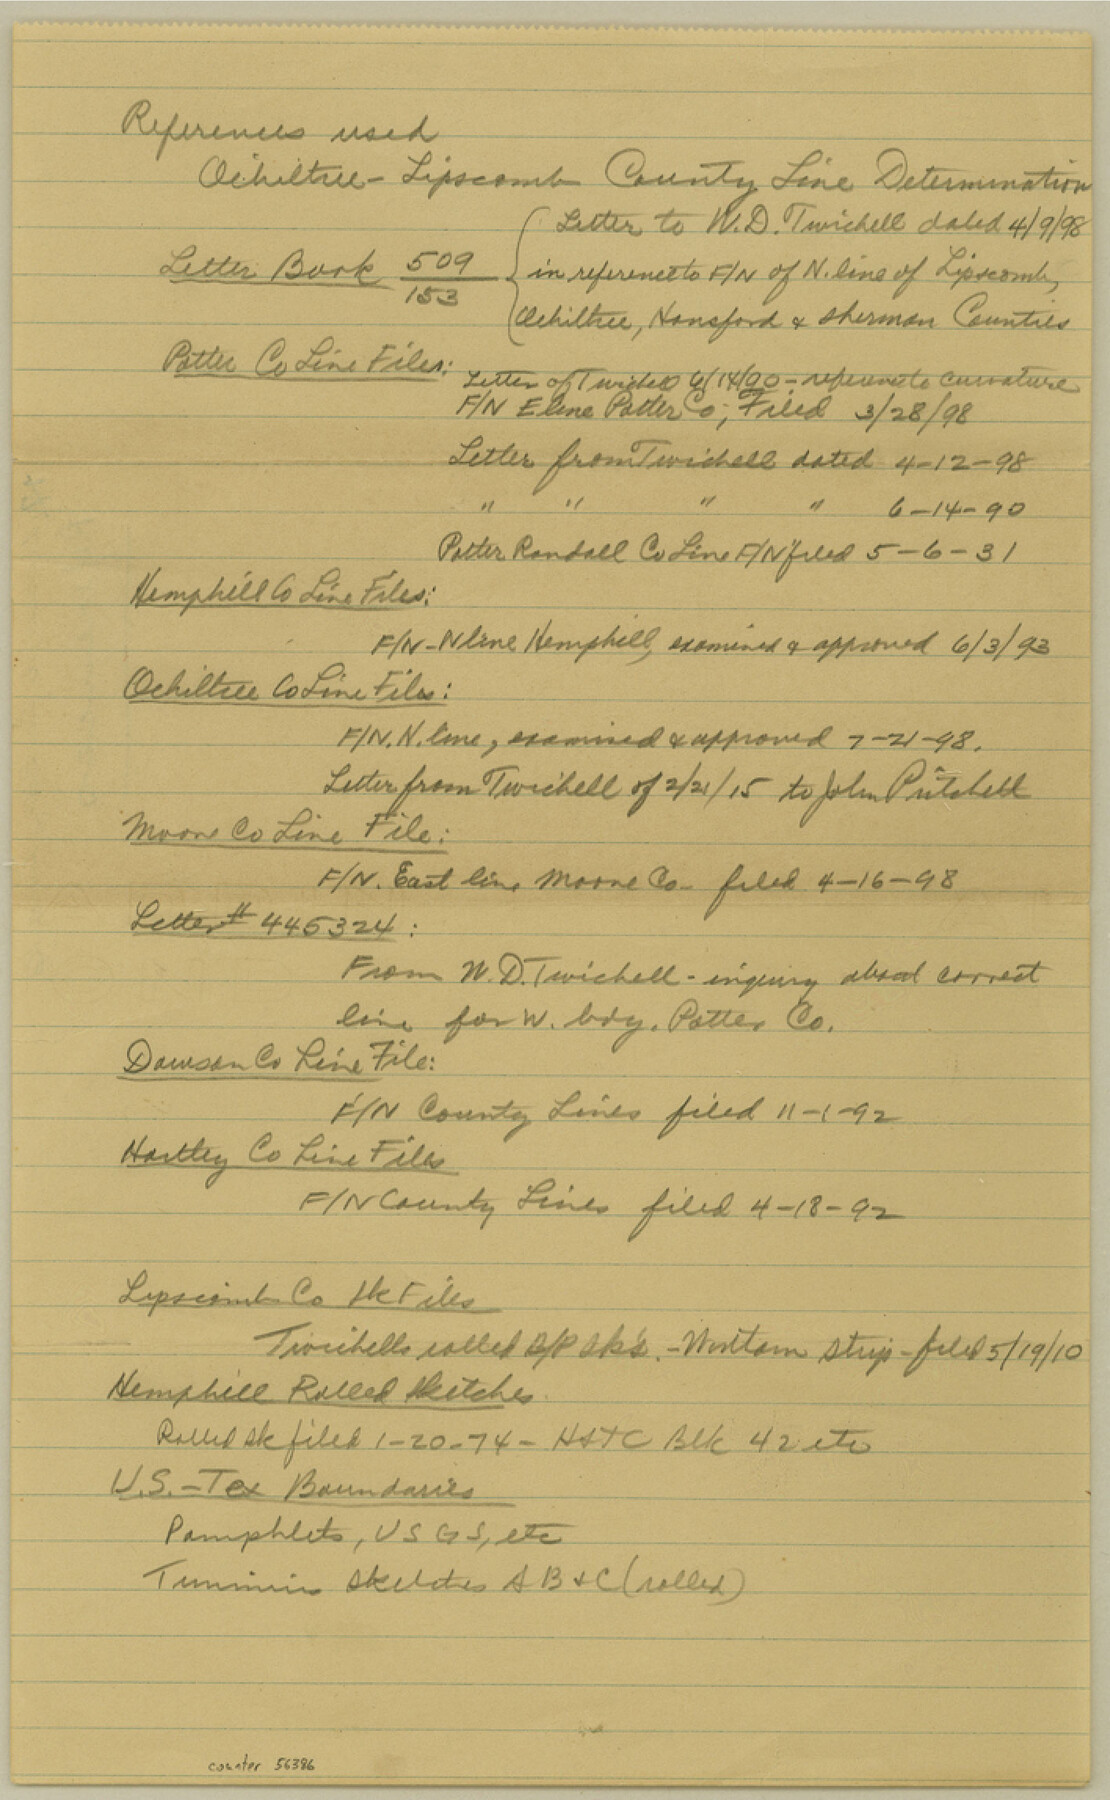 References used
Ochiltree - Lipscomb County Line Determination
Letter to W.D. Twichell dated 4/9/98
Letter Book 509/153 in reference to F/N of N. line of Lipscomb,
Ochiltree, Hansford & Sherman Counties
Potter Co Line Files:
Letter of Twichell 6/14/90 - reference to curvature
F/N E line Potter Co; Filed 3/28/98
Letter from Twichell dated 4-12-98
" " " " 6-14-90
Potter Randall Co Line F/N filed 5-6-31
Hemphill Co Line Files:
F/N - N line Hemphill, examined & approved 6/3/93
Ochiltree Co Line Files:
F/N. N. line, examined & approved 7-21-98.
Letter from Twichell of 2/21/15 to John Pritchell
Moore Co Line File:
F/N. East line Moore Co - filed 4-16-98
Letter # 445324:
From W.D. Twichell - inquiry about correct
line for W. bdy. Potter Co.
Dawson Co Line File:
F/N County Lines filed 11-1-92
Hartley Co Line Files
F/N County Lines filed 4-18-92
Lipscomb Co Sk Files
Twichells rolled B/P Sk's. - Strip - filed 5/19/10
Hemphill Rolled Sketches
Rolled Sk filed 1-20-74 - H&TC Blk 42 etc
U.S. - Tex Boundaries
Pamphlets, USGS, etc
Timmins Sketches A B & C (rolled)
counter 56386